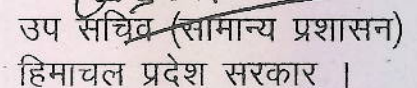 उप सचिव (सामान्य प्रशासन)
हिमाचल प्रदेश सरकार ।